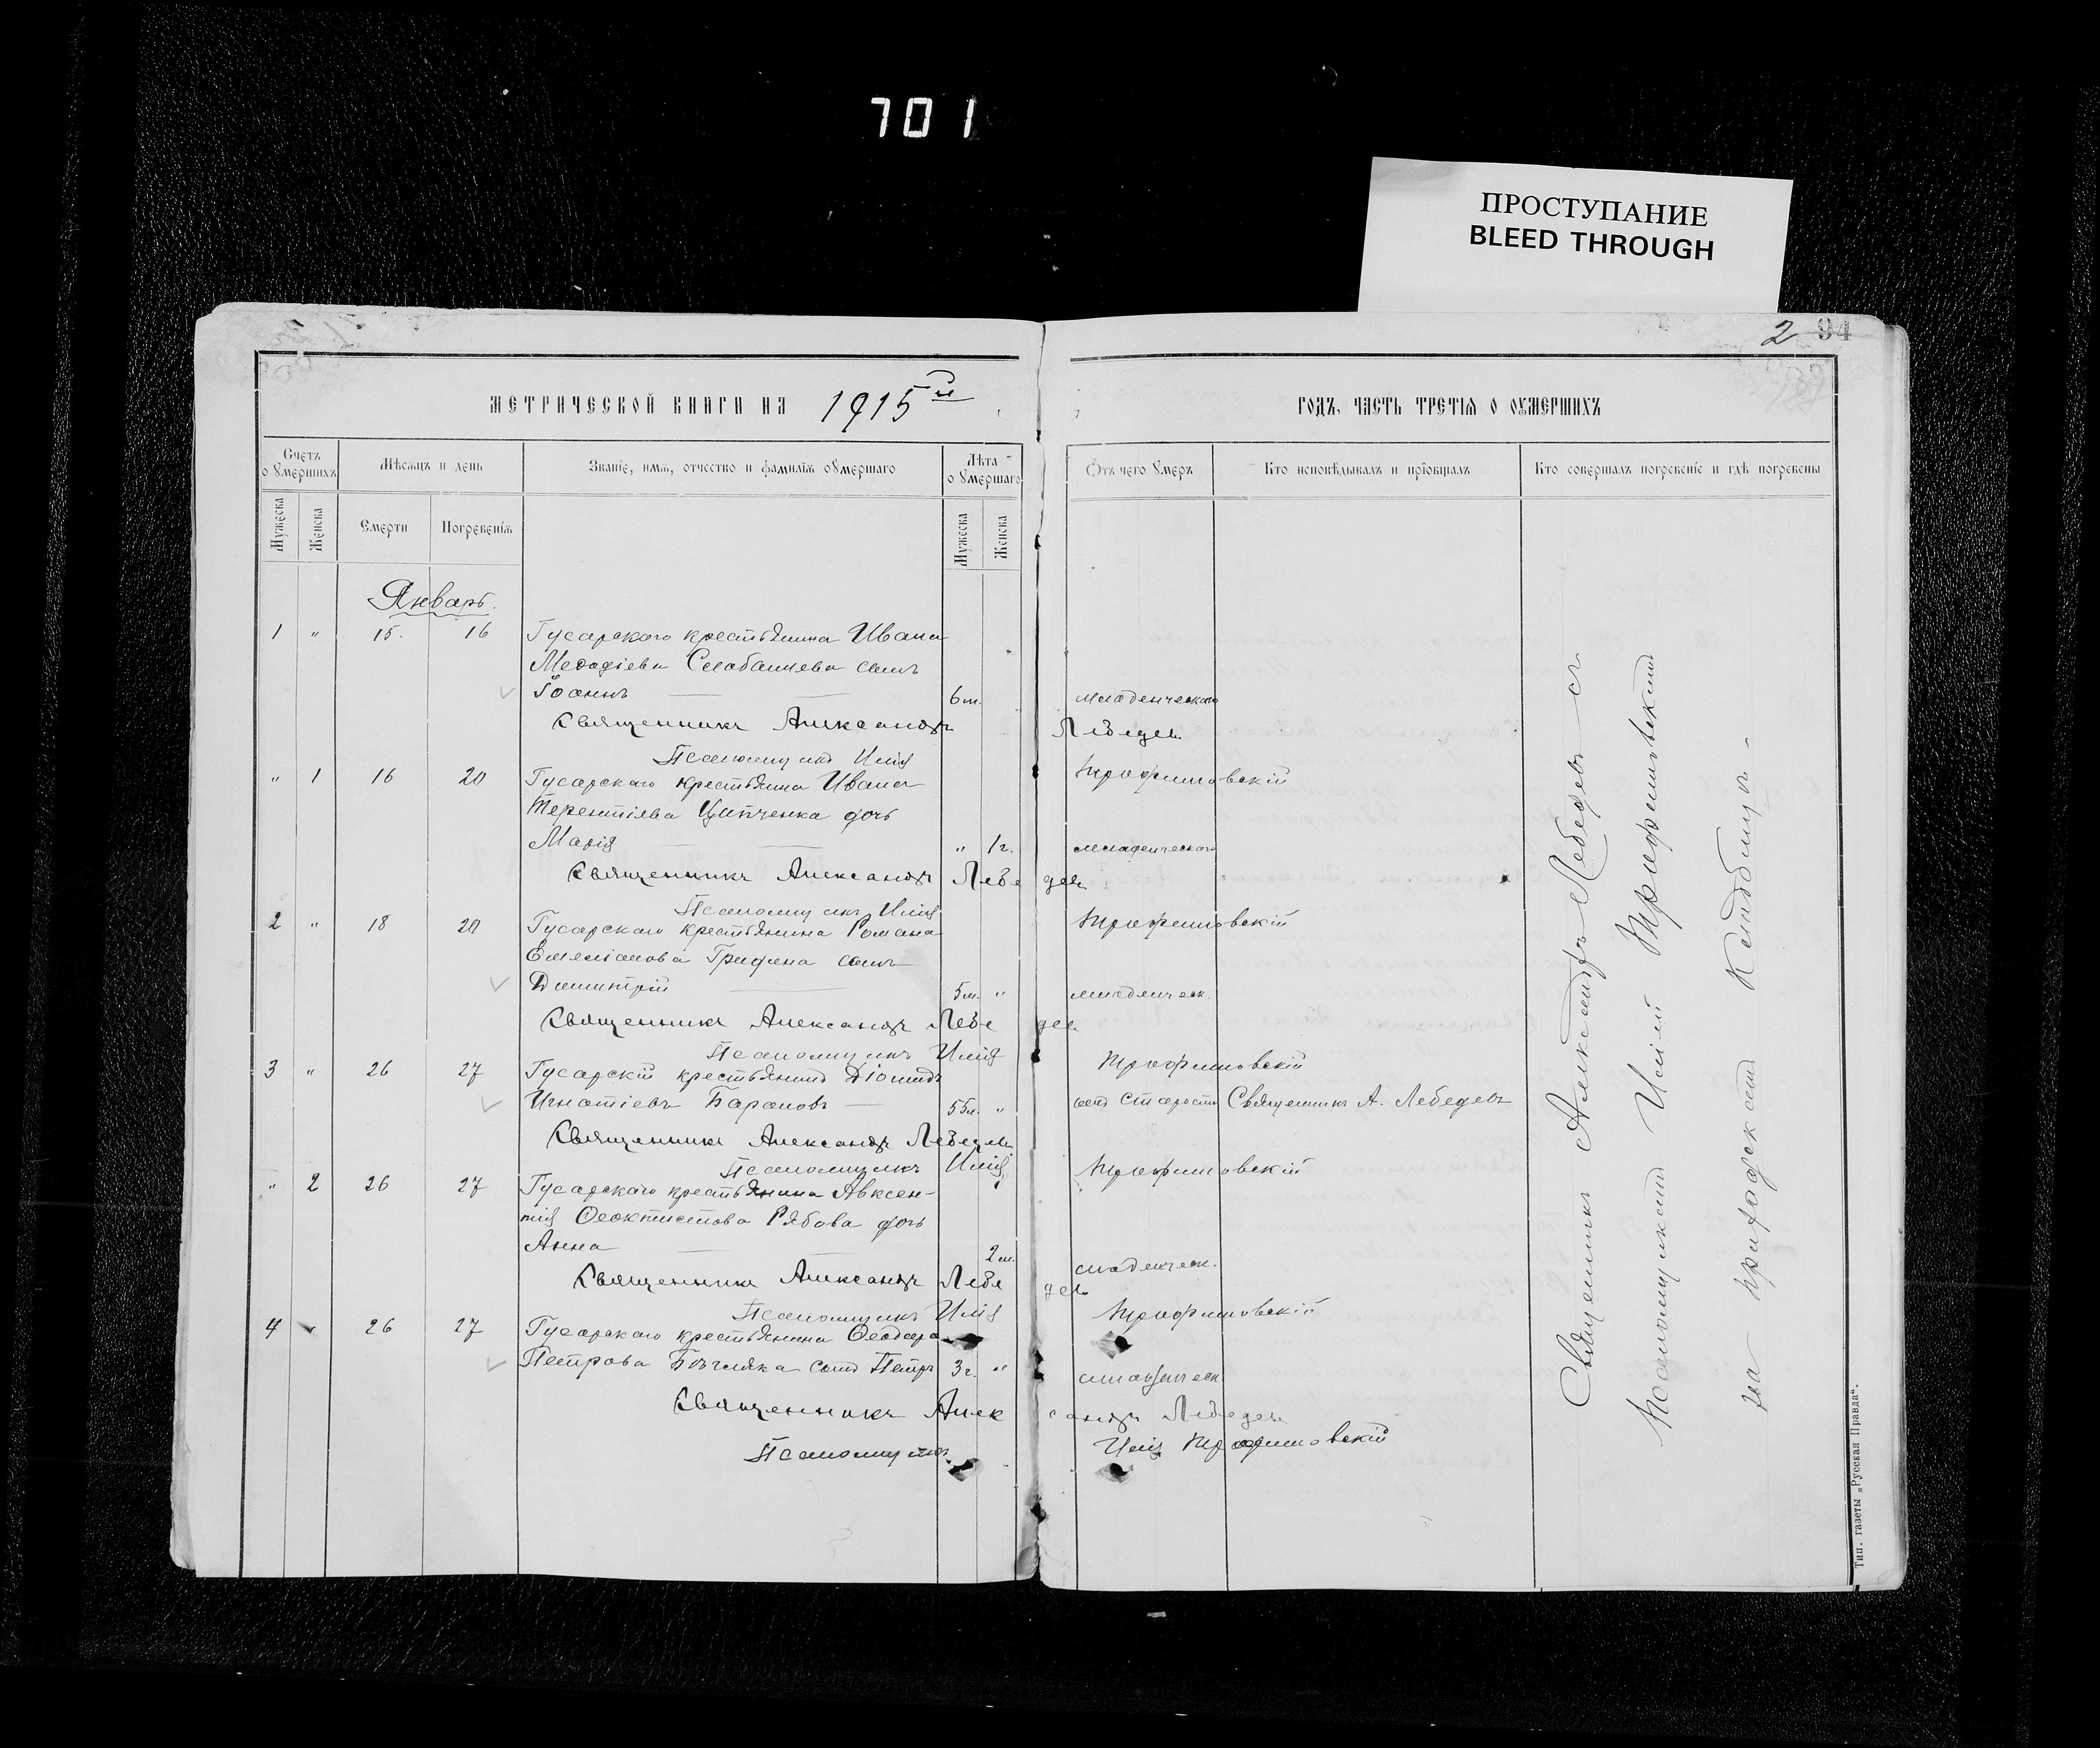 701
ПРОСТУПАНИЕ
BLEED THROUGH
2 94
МЕТРИЧЕСКОЙ КНИГИ НА 1915й
ГОДЪ, ЧАСТЬ ТРЕТІЯ О ОУМЕРШИХЪ
Счетъ оумершихъ
Мѣсяцъ и день
Званіе, имя, отчество и фамилія оумершаго
Лѣта оумершаго
Отъ чего умеръ
Кто исповѣдывалъ и пріобщалъ
Кто совершалъ погребеніе и гдѣ погребены
Мужеска
Женска
Смерти
Погребенія
Мужеска
Женска
Январь.
1 " 15. 16 Гусарскаго крестьянина Ивана
Меѳодіева сынъ
Іоаннъ 6 м. младенческаго
Священникъ Александръ Лебедевъ
Псаломщикъ Илія Трофимовскій
" 1 16 20 Гусарскаго крестьянина Ивана
Терентіева Ципченка дочь
Марія " 1 г. младенческаго
Священникъ Александръ Лебедевъ
Псаломщикъ Илія Трофимовскій
2 " 18 20 Гусарскаго крестьянина Романа
Емеліанова Грифена сынъ
Димитрій 5 м. " младенческ.
Священникъ Александръ Лебедевъ
Псаломщикъ Илія Трофимовскій
3 " 26 27 Гусарскій крестьянинъ Діомидъ
Игнатіевъ Барановъ 55 л. " отъ старости Священникъ А. Лебедевъ
Священникъ Александръ Лебедевъ
Псаломщикъ Илія Трофимовскій
" 2 26 27 Гусарскаго крестьянина Авксен-
тія Ѳеоктистова Рябова дочь
Анна 2 м. младенческ.
Священникъ Александръ Лебедевъ
Псаломщикъ Илія Трофимовскій
4 " 26 27 Гусарскаго крестьянина Ѳеодора
Петрова сынъ Петръ 3 г. " младенческ.
Священникъ Александръ Лебедевъ
Псаломщикъ Илія Трофимовскій
Священникъ Александръ Лебедевъ съ
Псаломщикомъ Иліей Трофимовскимъ
на приходскомъ кладбищѣ.
Тип. газеты „Русская Правда“.